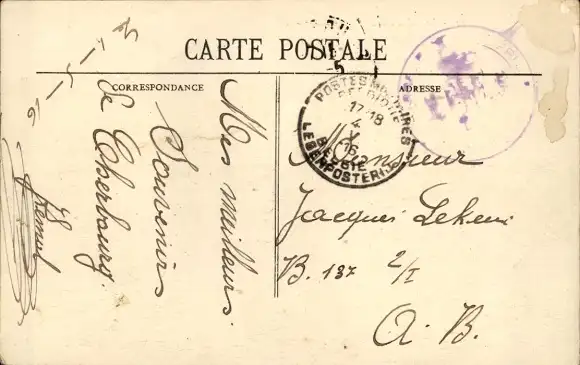 CARTE POSTALE
CORRESPONDANCE
ADRESSE
Mes meilleurs
Souvenirs
de Cherbourg.
POSTES MILITAIRES
BELGIQUE
17-18
4
V
16
BELGIE
LEGERPOSTERIJ
Monsieur
Jacques Lekeu
B. 137 2/I
A. B.